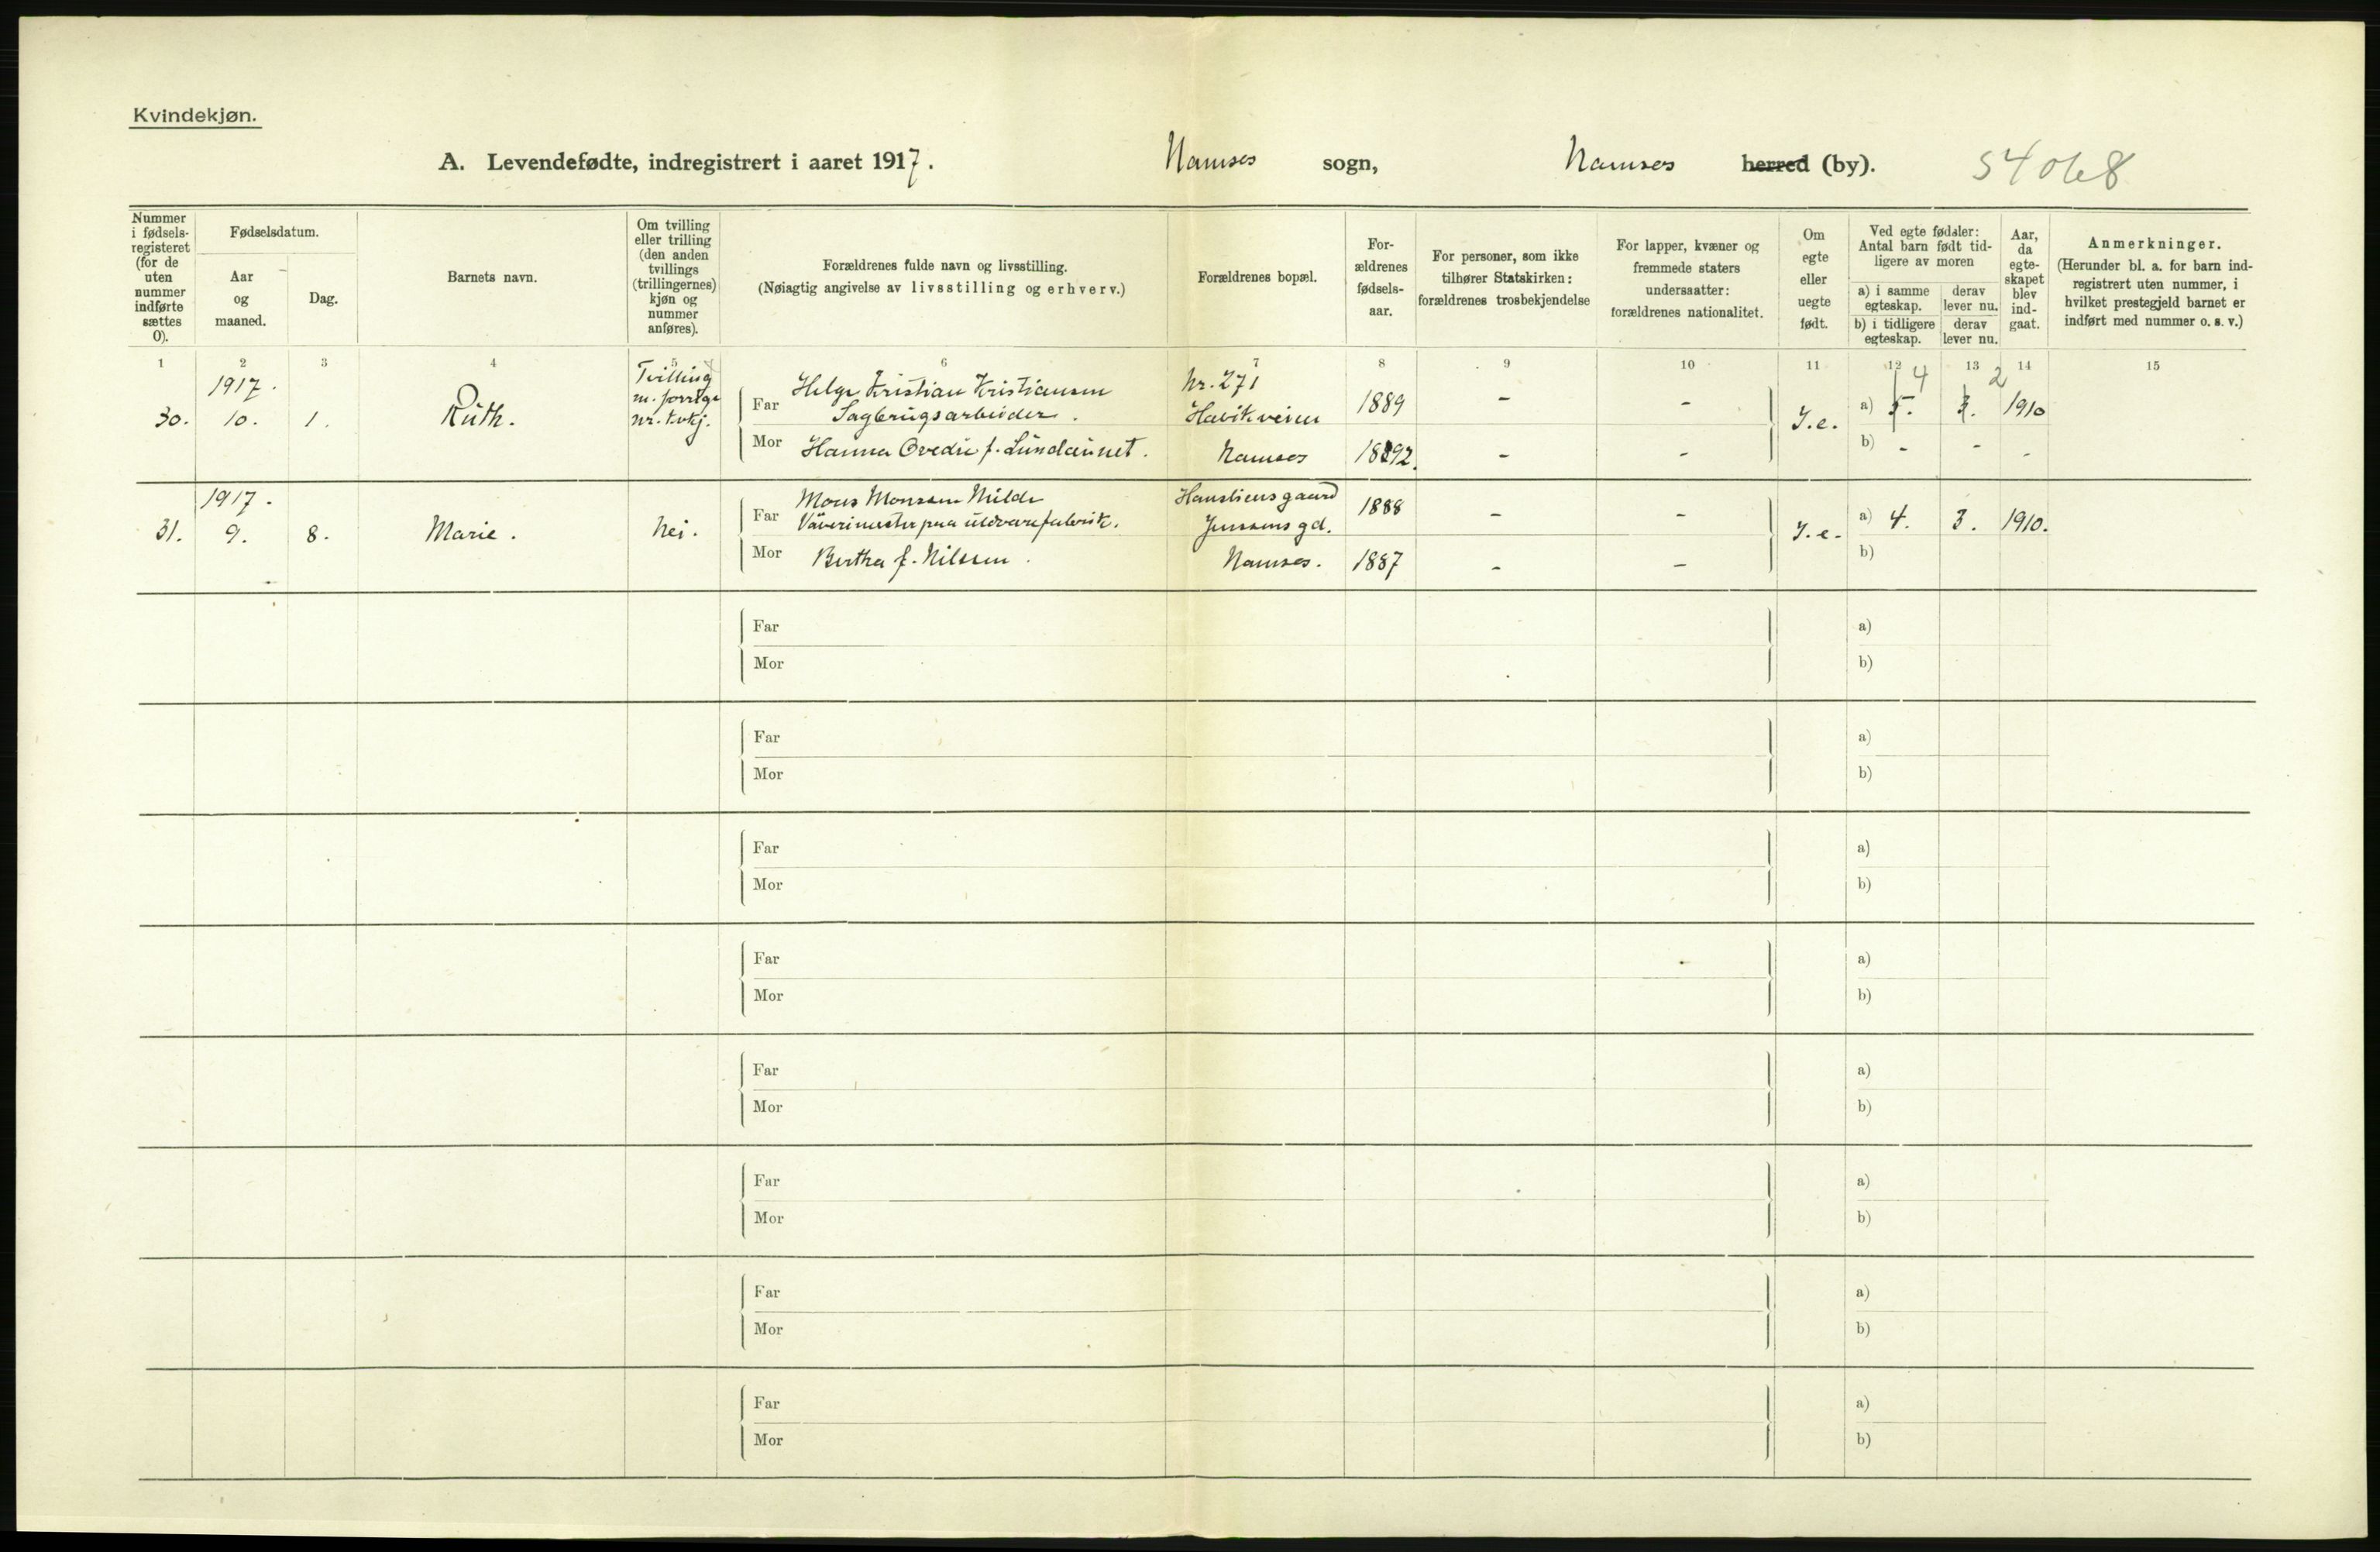 Kvindekjøn.
A. Levendefødte, indregistrert i aaret 1917. Namsos sogn, Namsos herred (by). 54068
Nummer i fødsels-registeret (for de uten nummer indførte sættes 0).
Fødselsdatum.
Aar og maaned.
Dag.
Barnets navn.
Om tvilling eller trilling (den anden tvillings (trillingernes) kjøn og nummer anføres).
Forældrenes fulde navn og livsstilling.
(Nøiagtig angivelse av livsstilling og erhverv.)
Forældrenes bopæl.
For-ældrenes fødsels-aar.
For personer, som ikke tilhører Statskirken: forældrenes trosbekjendelse
For lapper, kvæner og fremmede staters undersaatter: forældrenes nationalitet.
Om egte eller uegte født.
Ved egte fødsler: Antal barn født tid-ligere av moren
a) i samme egteskap.
derav lever nu.
b) i tidligere egteskap.
derav lever nu.
Aar, da egte-skapet blev ind-gaat.
Anmerkninger.
(Herunder bl. a. for barn ind-registrert uten nummer, i hvilket prestegjeld barnet er indført med nummer o. s. v.)
1 2 3 4 5 6 7 8 9 10 11 12 13 14 15
1917. Tvilling Helge Kristian Kristiansen Nr. 271 4 2
30. 10. 1. Ruth. m. forrige nr. kvkj. Far Sagbrugsarbeider. Havikveien 1889 - - I.e. a) 5. 3. 1910
Mor Hanna Ovedie f. Lundaunet. Namsos 1892. - - b) - - -
1917. Mons Monssen Milde Haustiensgaard
31. 9. 8. Marie. Nei. Far Væverimester paa uldvarefabrik. Jenssens gd. 1888 - - I.e. a) 4. 3. 1910.
Mor Berthe f. Nilssen. Namsos. 1887 - - b)
Far a)
Mor b)
Far a)
Mor b)
Far a)
Mor b)
Far a)
Mor b)
Far a)
Mor b)
Far a)
Mor b)
Far a)
Mor b)
Far a)
Mor b)